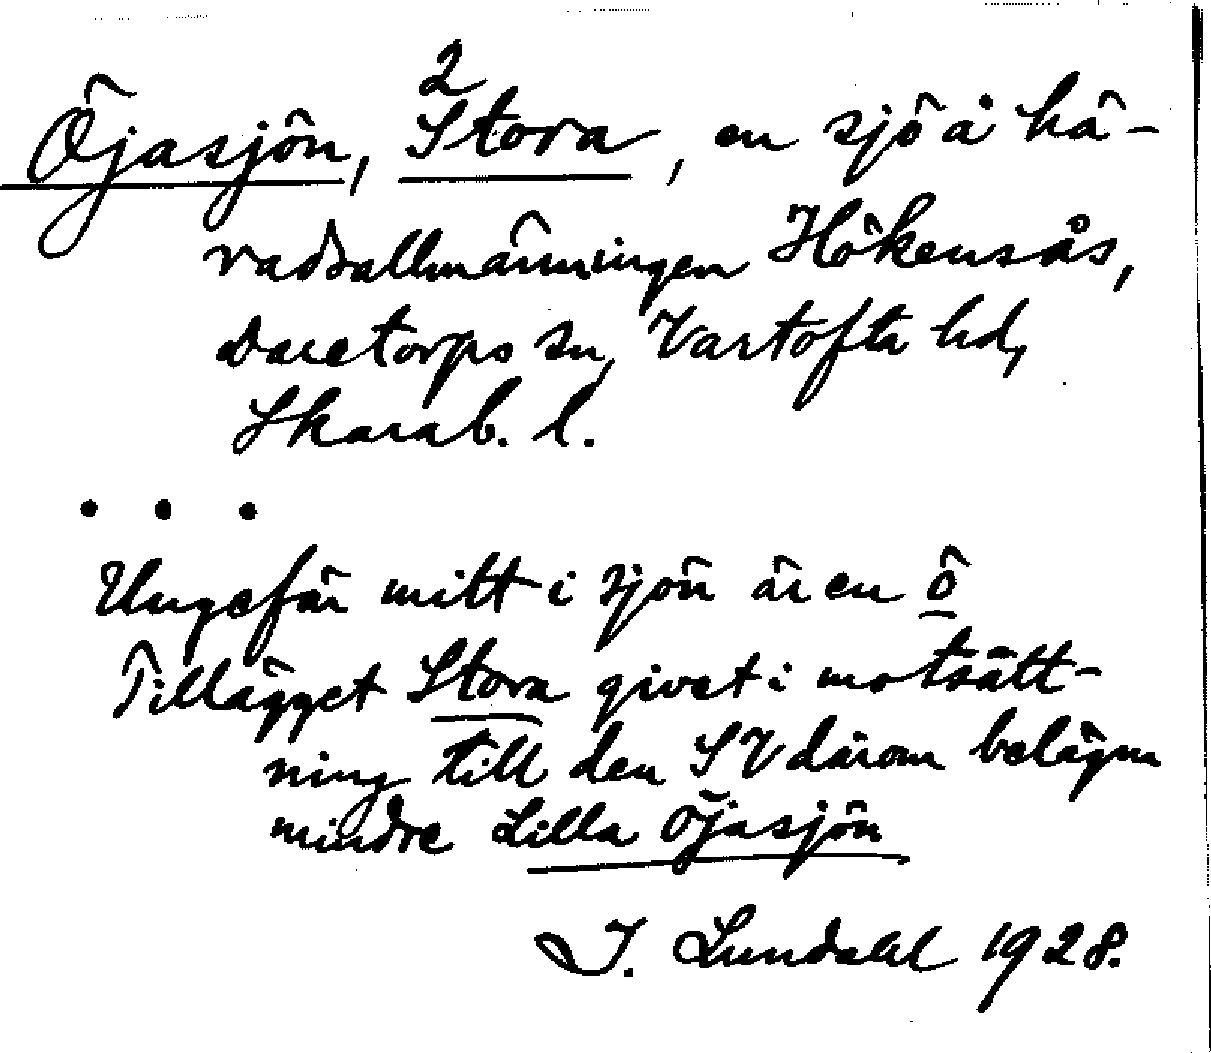 2
Öjasjön, Stora, en sjö å hä-
radsallmänningen Hökensås,
Daretorps sn, Vartofta hd,
Skarab. l.
. . .
Ungefär mitt i sjön är en ö
Tillägget Stora givet i motsätt-
ning till den SV därom belägna
mindre Lilla Öjasjön
I. Lundahl 1928.